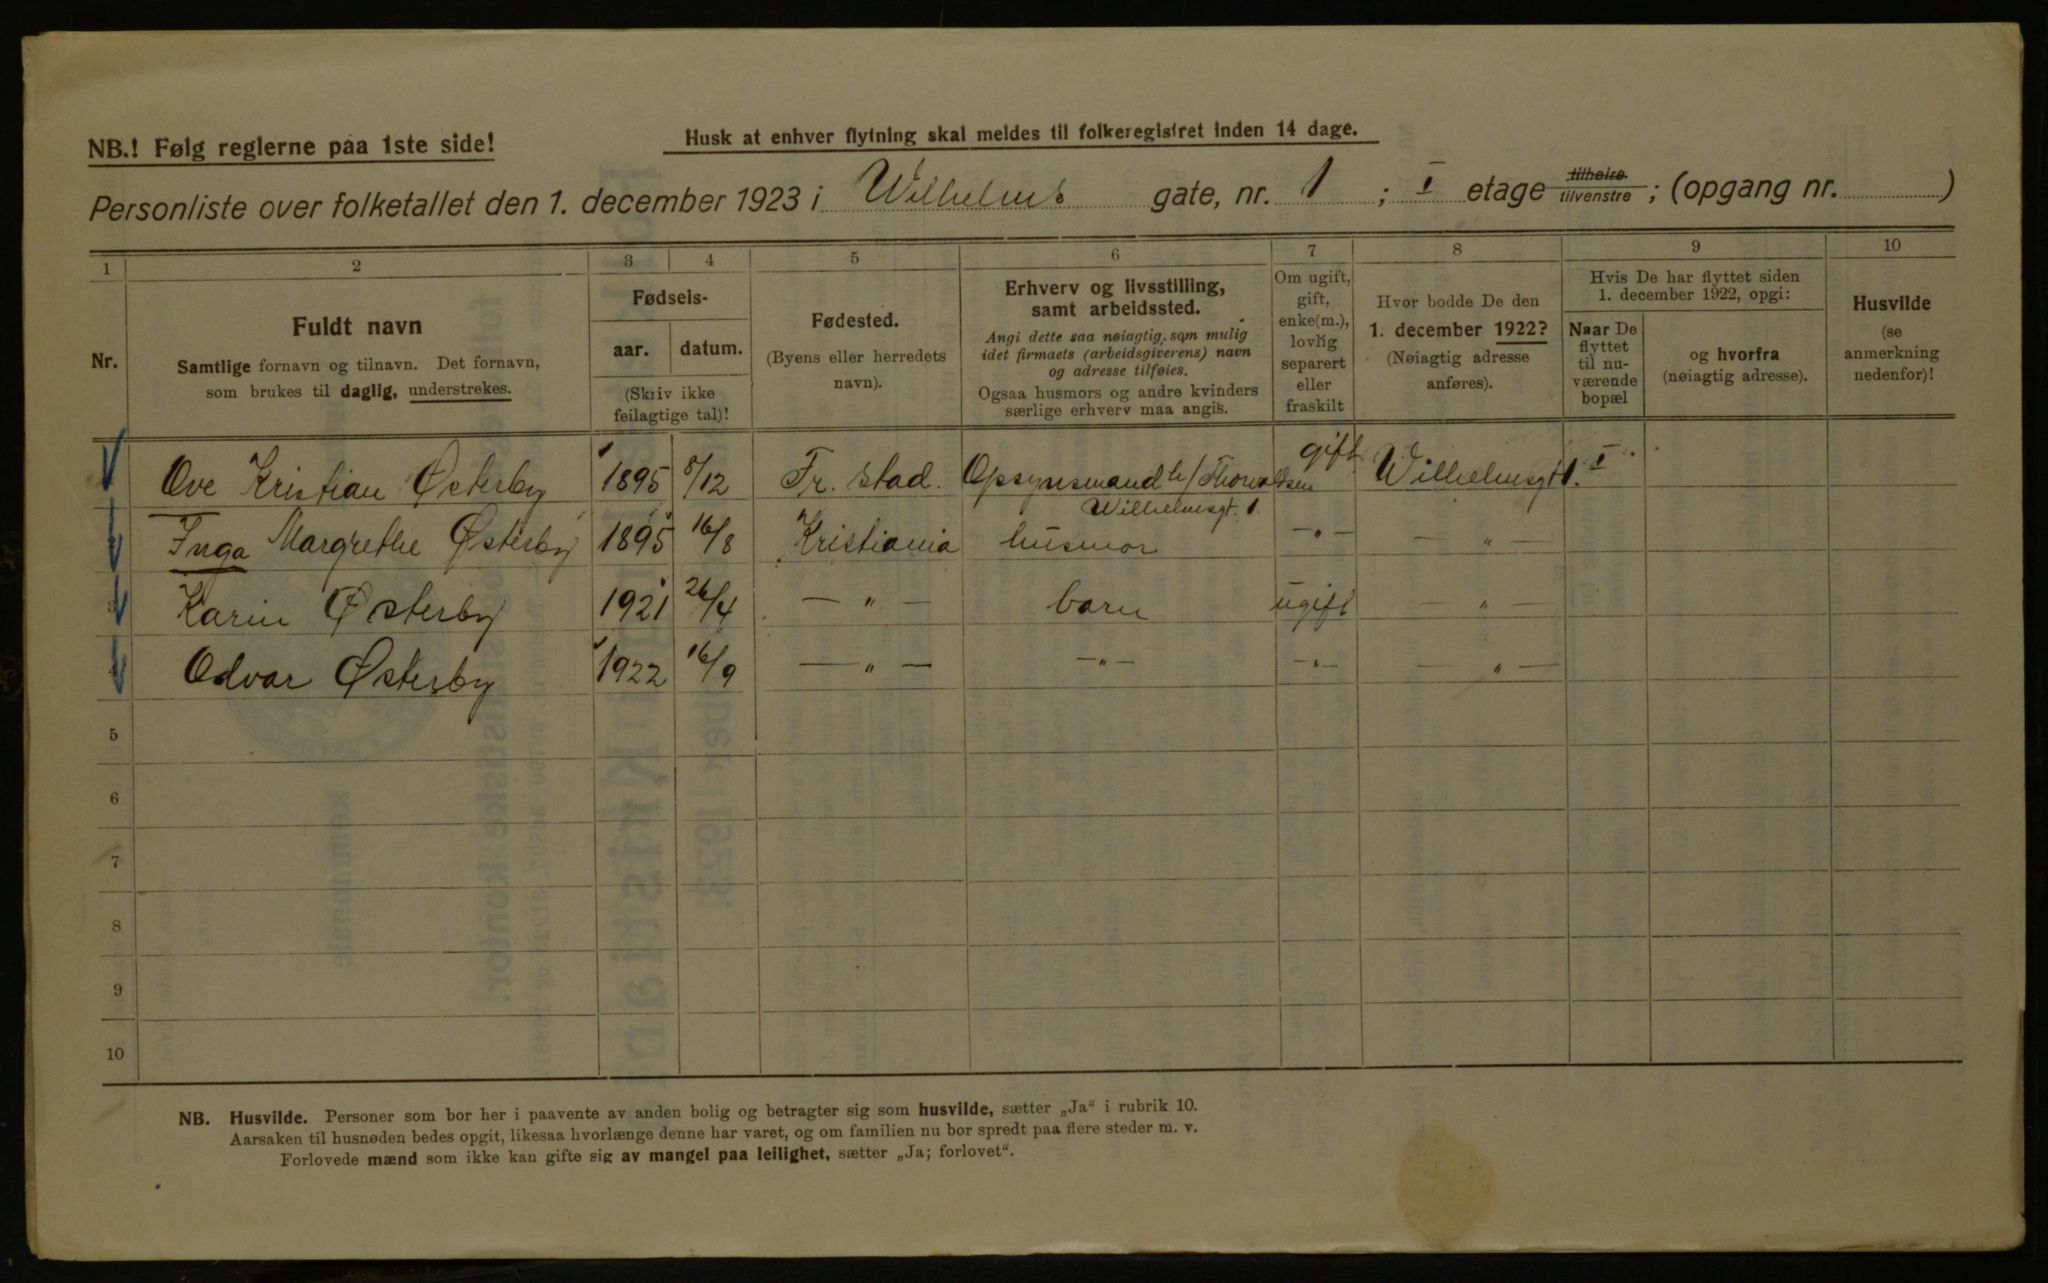 NB.! Følg reglerne paa 1ste side!
Husk at enhver flytning skal meldes til folkeregistret inden 14 dage.
Personliste over folketallet den 1. december 1923 i Wilhelms gate, nr. 1 ; I etage tilhøire tilvenstre ; (opgang nr. )
1 2 3 4 5 6 7 8 9 10
Nr.
Fuldt navn
Samtlige fornavn og tilnavn. Det fornavn,
som brukes til daglig, understrekes.
Fødsels-
aar. datum.
(Skriv ikke
feilagtige tal)!
Fødested.
(Byens eller herredets
navn).
Erhverv og livsstilling,
samt arbeidssted.
Angi dette saa nøiagtig som mulig
idet firmaets (arbeidsgiverens) navn
og adresse tilføies.
Ogsaa husmors og andre kvinders
særlige erhverv maa angis.
Om ugift,
gift,
enke(m.),
lovlig
separert
eller
fraskilt
Hvor bodde De den
1. december 1922?
(Nøiagtig adresse
anføres).
Hvis De har flyttet siden
1. december 1922, opgi:
Naar De
flyttet
til nu-
værende
bopæl
og hvorfra
(nøiagtig adresse).
Husvilde
(se
anmerkning
nedenfor)!
Ove Kristian Østerby 1895 8/12 Fr. stad. Opsynsmand h/Thorvaldsen gift. Wilhelmsgt 1. I
Wilhelmsgt. 1.
Inga Margrethe Østerby 1895 16/8 Kristiania husmor — " — — " —
3 Karin Østerby 1921 26/4 — " — barn ugift — " —
4 Odvar Østerby 1922 16/9 — " — — " — — " — — " —
5
6
7
8
9
10
NB. Husvilde. Personer som bor her i paavente av anden bolig og betragter sig som husvilde, sætter „Ja“ i rubrik 10.
Aarsaken til husnøden bedes opgit, likesaa hvorlænge denne har varet, og om familien nu bor spredt paa flere steder m. v.
Forlovede mænd som ikke kan gifte sig av mangel paa leilighet, sætter „Ja; forlovet“.